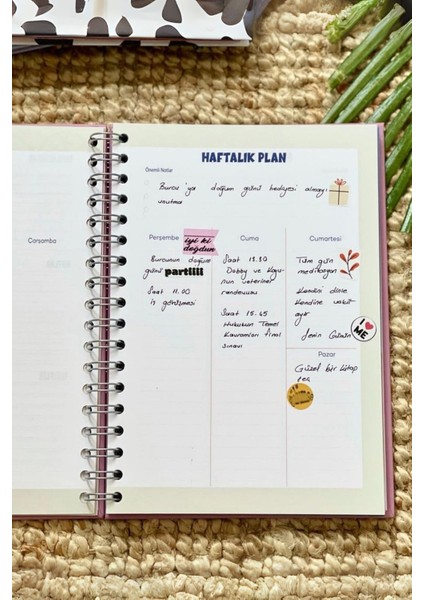 HAFTALIK PLAN
Önemli Notlar
Burcu 'ya doğum günü hediyesi almayı
unutma
Çarşamba
Perşembe
iyi ki
doğdun
Burcunun doğum
günü partiiii
Saat 11.00
iş görüşmesi
Cuma
Saat
Dobby ve
nun veteriner
randevusu
Saat 15.45
Hukukun Temel
Kavramları final
sınavı
Cumartesi
Tüm gün
meditasyon
Kendini dinle
Kendine vakit
ayır
I
ME
Pazar
Güzel bir kitap
seç